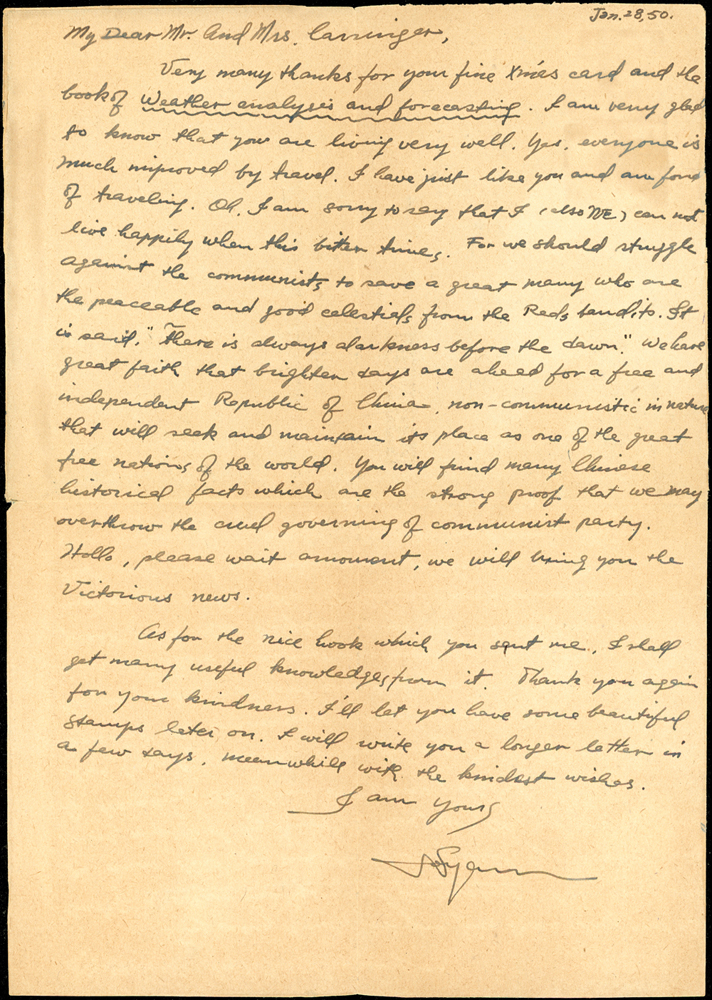 Jan. 28, 50.
My Dear Mr. And Mrs. Carringer,
Very many thanks for your fine Xmas card and the
book of Weather analysis and forecasting. I am very glad
to know that you are living very well. Yes, everyone is
much improved by travel. I have just like you and am fond
of traveling. Oh, I am sorry to say that I (also WE) can not
live happily when this bitter times. For we should struggle
against the communists to save a great many who are
the peaceable and good celestials from the Reds bandits. It
is said, "There is always darkness before the dawn." We have
great faith that brighten days are ahead for a free and
independent Republic of China, non-communistic in nature
that will seek and maintain its place as one of the great
free nations of the world. You will find many Chinese
historical facts which are the strong proof that we may
overthrow the cruel governing of communist party.
Hollo, please wait amoment, we will bring you the
Victorious news.
As for the nice book which you sent me, I shall
get many useful knowledges from it. Thank you again
for your kindness. I'll let you have some beautiful
stamps later on. I will write you a longer letter in
a few days, meanwhile with the kindest wishes.
I am yours